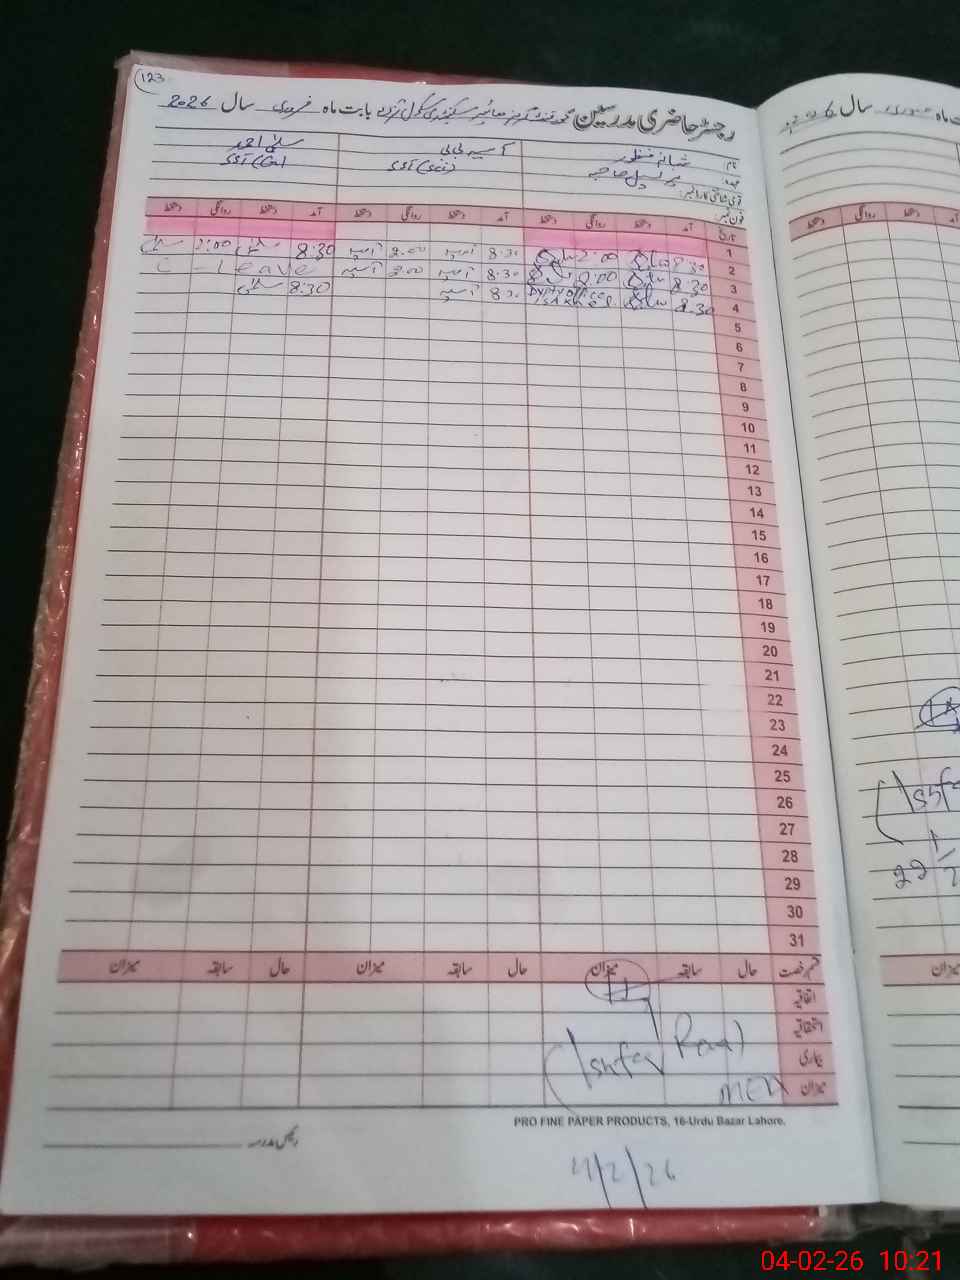 123
رجسٹر حاضری مدرسین گورنمنٹ گرلز ہائیر سیکنڈری سکول بابت ماہ فروری سال 2026
نام شبانہ منظور آسیہ بی بی سلمیٰ احمد
عہدہ پرنسپل صاحبہ SST (Sci) SST (Gen)
قومی شناختی کارڈ نمبر:
فون نمبر:
تاریخ آمد دستخط روانگی دستخط آمد دستخط روانگی دستخط آمد دستخط روانگی دستخط
1
2 8:30 2:00 8:30 آسیہ 2:00 آسیہ 8:30 سلمیٰ 2:00 سلمیٰ
3 8:30 2:00 8:30 آسیہ 2:00 آسیہ C - Leave
4 8:30 8:30 آسیہ 8:30 سلمیٰ
5
6
7
8
9
10
11
12
13
14
15
16
17
18
19
20
21
22
23
24
25
26
27
28
29
30
31
قسم رخصت حال سابقہ میزان حال سابقہ میزان حال سابقہ میزان
اتفاقیہ
استحقاقیہ
بیماری
میزان
(Ishfaq
MEA
PRO FINE PAPER PRODUCTS, 16-Urdu Bazar Lahore.
رئیس مدرسہ
4/2/26
ماہ جنوری سال 2026
دستخط روانگی دستخط
میزان
04-02-26 10:21